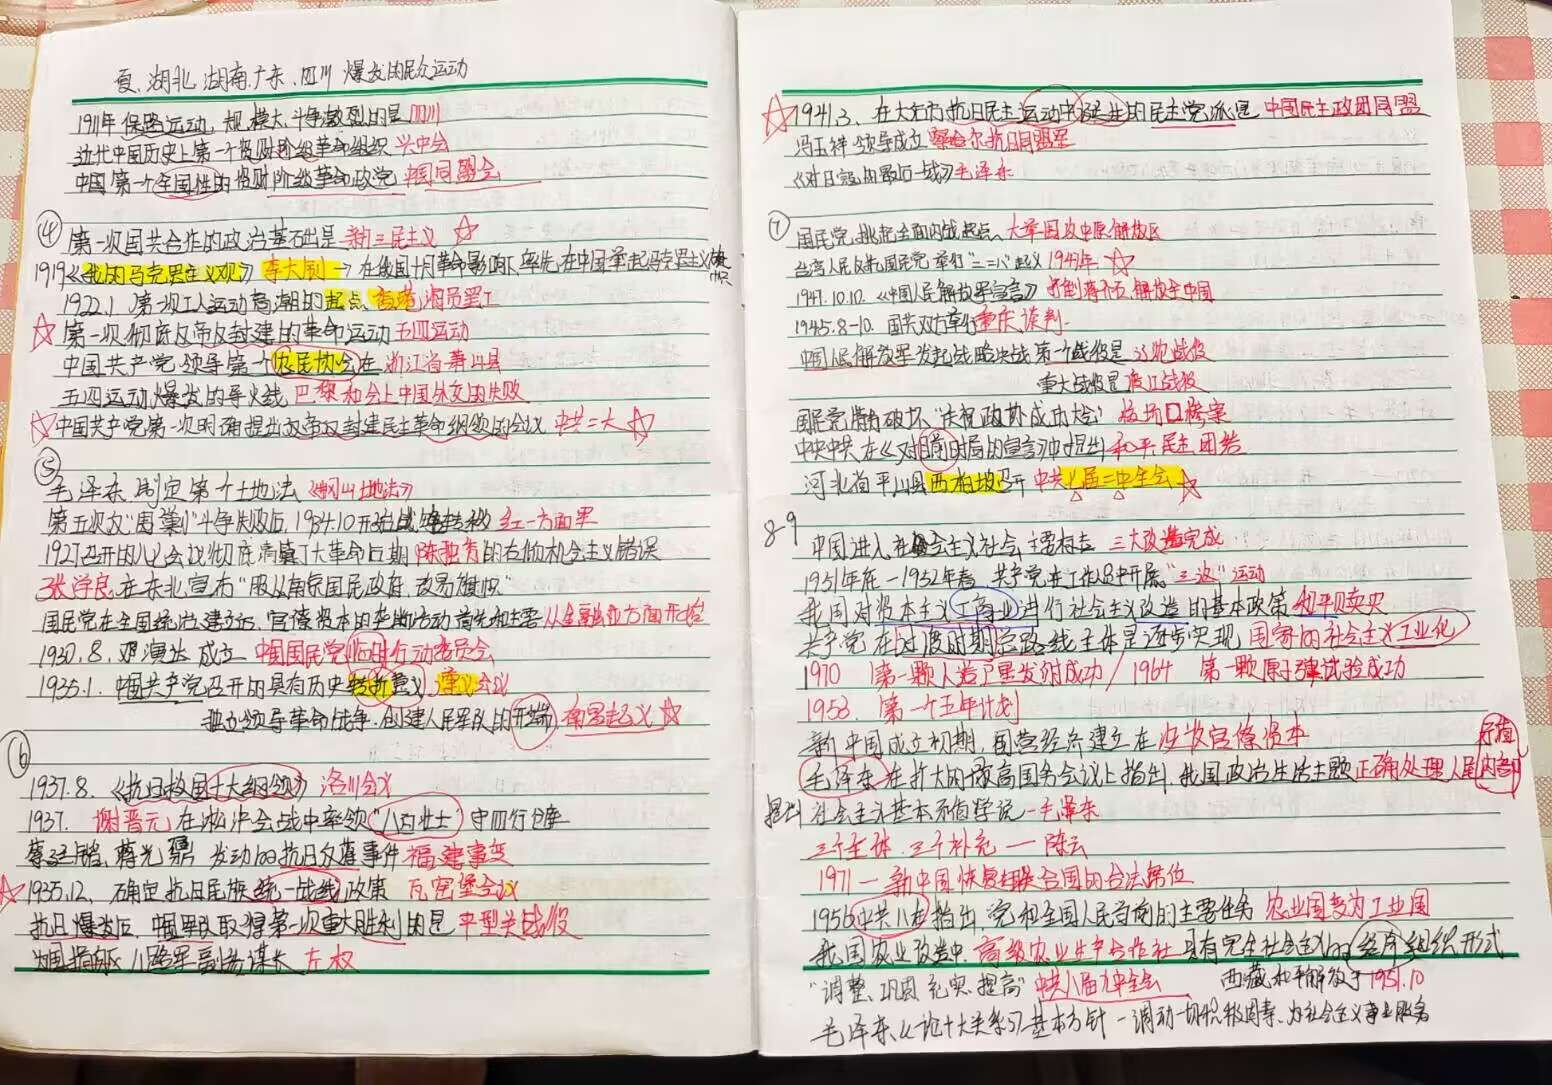 夏、湖北、湖南、广东、四川 爆发的民众运动
1911年保路运动，规模大、斗争激烈的是四川
近代中国历史上第一个资财阶级革命组织 兴中会
中国第一个全国性的资财阶级革命政党 中国同盟会
④ 第一次国共合作的政治基础是 新三民主义
1919《我的马克思主义观》李大钊 → 在俄国十月革命影响下，率先在中国举起马克思主义旗帜
1922.1 第一次工人运动高潮的起点、香港海员罢工
第一次彻底反帝反封建的革命运动 五四运动
中国共产党领导第一个农民协会在 浙江省萧山县
五四运动爆发的导火线 巴黎和会上中国外交的失败
中国共产党第一次明确提出反帝反封建民主革命纲领的会议 中共二大
⑤
毛泽东制定第一个土地法《井冈山土地法》
第五次反"围剿"斗争失败后，1934.10开始战略转移 红一方面军
1927召开的八七会议彻底清算了大革命后期陈独秀的右倾机会主义错误
张学良在东北宣布"服从南京国民政府，改易旗帜"
国民党在全国统治建立后，官僚资本的垄断活动首先和主要从金融业方面开始
1930.8. 邓演达成立 中国国民党临时行动委员会
1935.1. 中国共产党召开的具有历史转折意义 遵义会议
独立领导革命战争、创建人民军队的开端 南昌起义
⑥
1937.8.《抗日救国十大纲领》洛川会议
1937. 谢晋元在淞沪会战中率领"八百壮士"守四行仓库
蔡廷锴、蒋光鼐 发动的抗日反蒋事件 福建事变
1935.12. 确定抗日民族统一战线政策 瓦窑堡会议
抗日爆发后，中国军队取得第一次重大胜利的是 平型关战役
为国捐躯 八路军副参谋长 左权
1941.3. 在大后方抗日民主运动中诞生的民主党派是 中国民主政团同盟
冯玉祥领导成立 察哈尔抗日同盟军
《对日寇的最后一战》毛泽东
⑦
国民党挑起全面内战起点、大举围攻中原解放区
台湾人民反抗国民党举行"二·二八"起义 1947年
1947.10.10.《中国人民解放军宣言》打倒蒋介石，解放全中国
1945.8-10. 国共双方举行重庆谈判.
中国人民解放军发起战略决战第一个战役是 辽沈战役
重大战役是 渡江战役
国民党特务破坏"庆祝政协成功大会" 较场口惨案
中央中共在《对目前时局的宣言》中提出 和平、民主、团结
河北省平山县西柏坡召开 中共七届二中全会
8-9
中国进入社会主义社会主要标志 三大改造完成
1951年底-1952年春 共产党在工作人员中开展"三反"运动
我国对资本主义工商业进行社会主义改造的基本政策 和平赎买
共产党在过渡时期总路线主体是逐步实现 国家的社会主义工业化
1970 第一颗人造卫星发射成功 / 1964 第一颗原子弹试验成功
1953. 第一个五年计划
新中国成立初期，国营经济建立在 没收官僚资本
毛泽东在扩大的最高国务会议上指出，我国政治生活主题 正确处理人民内部矛盾
提出社会主义基本矛盾学说—毛泽东
三个主体、三个补充 — 陈云
1971 — 新中国恢复联合国的合法席位
1956 中共八大指出，党和全国人民当前的主要任务 农业国变为工业国
我国农业改造中 高级农业生产合作社 具有完全社会主义的经济组织形式
"调整、巩固、充实、提高" 中共八届九中全会 西藏和平解放于1951.10
毛泽东《论十大关系》基本方针 — 调动一切积极因素、为社会主义事业服务